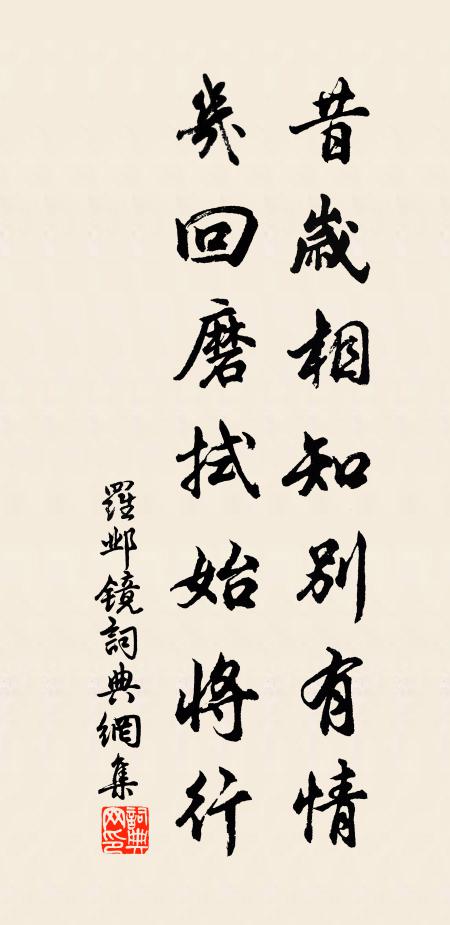 昔歲相知別有情
幾回磨拭始將行
羅鄴鏡詞典網集
詞典網印